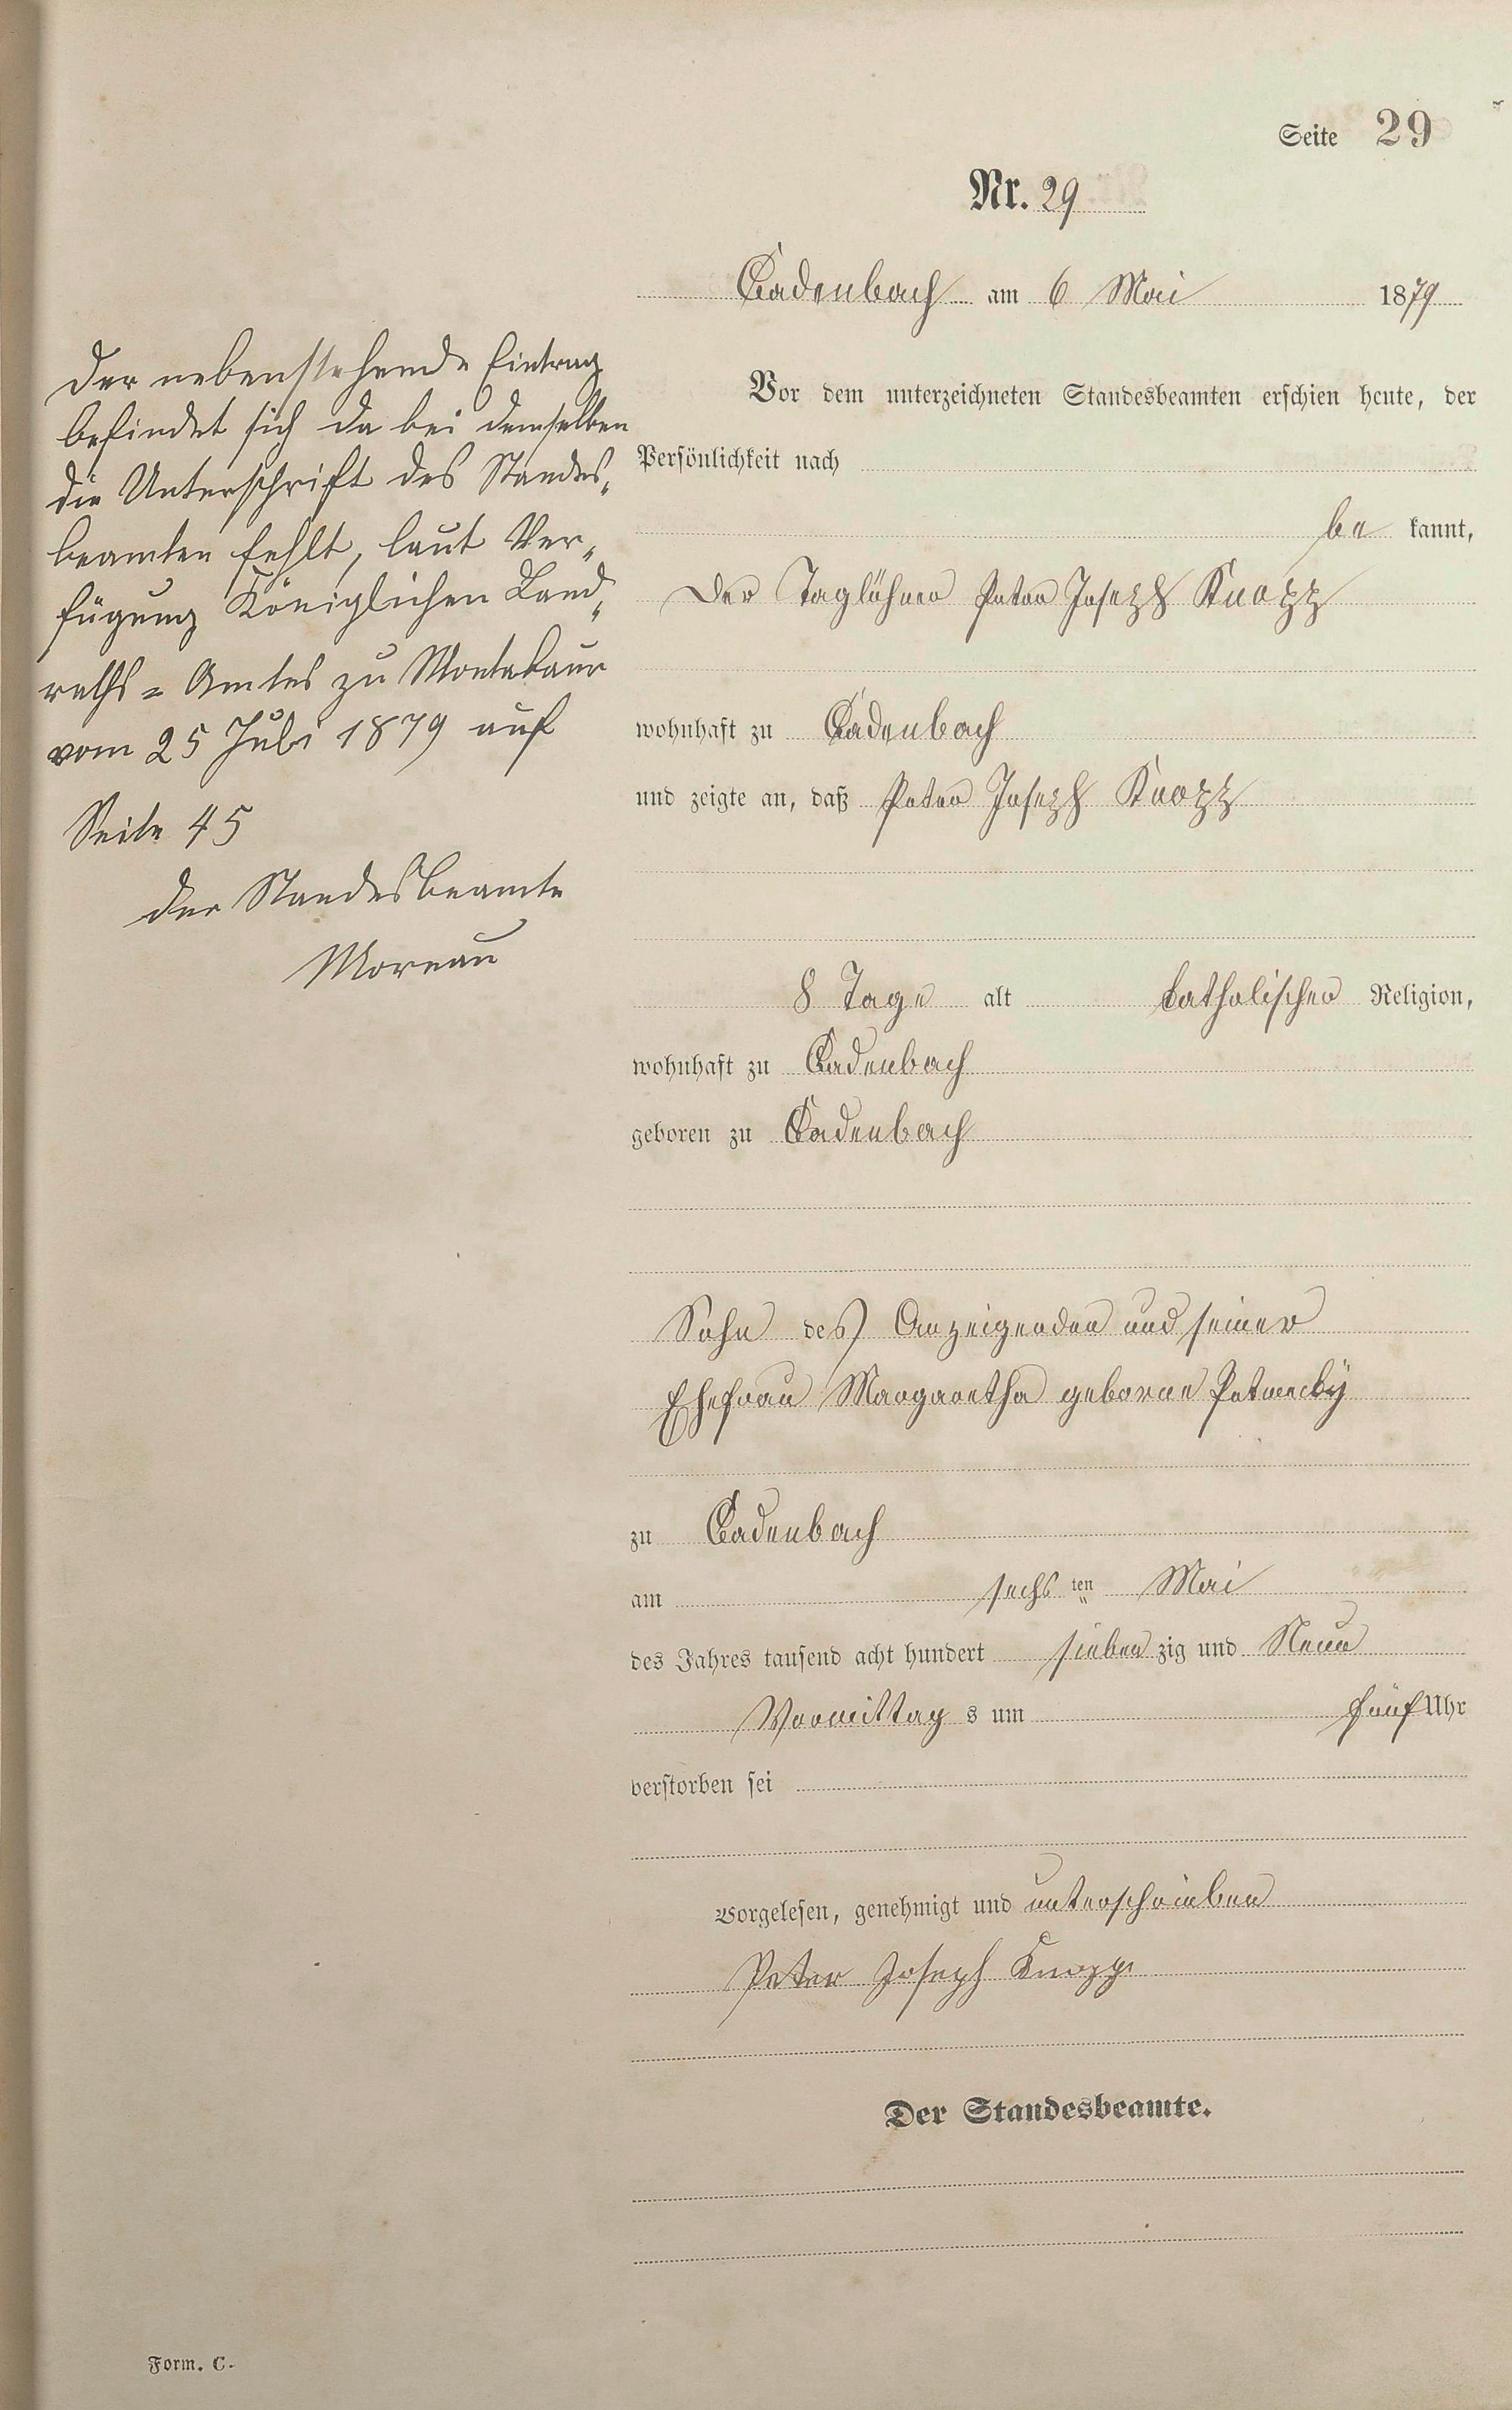 Seite 29
Nr. 29
Cadenbach am 6 Mai 1879
Vor dem unterzeichneten Standesbeamten erschien heute, der
Persönlichkeit nach
be kannt,
Der Taglöhner Peter Joseph Knopp
wohnhaft zu Cadenbach
und zeigte an, daß Peter Joseph Knopp
8 Tage alt katholischer Religion,
wohnhaft zu Cadenbach
geboren zu Cadenbach
Sohn des Anzeigenden und seiner
Ehefrau Margaretha geborne Petmecky
zu Cadenbach
am sechs ten Mai
des Jahres tausend acht hundert sieben zig und Neun
Vormittag s um fünf Uhr
verstorben sei
Vorgelesen, genehmigt und unterschrieben
Peter Joseph Knopp
Der Standesbeamte.
Der nebenstehende Eintrag
befindet sich da bei demselben
die Unterschrift des Standes„
beamten fehlt, laut Ver„
fügung Königlichen Land„
raths = Amtes zu Montabaur
vom 25 Juli 1879 auf
Seite 45
Der Standesbeamte
Moreau
Form. C.